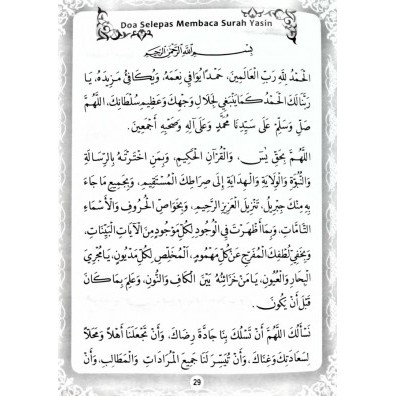 Doa Selepas Membaca Surah Yasin
بِسْمِ اللَّهِ الرَّحْمَنِ الرَّحِيمِ
الْحَمْدُ لِلَّهِ رَبِّ الْعَالَمِينَ، حَمْدًا يُوَافِي نِعَمَهُ، وَيُكَافِئُ مَزِيدَهُ، يَا
رَبَّنَا لَكَ الْحَمْدُ كَمَا يَنْبَغِي لِجَلَالِ وَجْهِكَ وَعَظِيمِ سُلْطَانِكَ، اللَّهُمَّ
صَلِّ وَسَلِّمْ عَلَى سَيِّدِنَا مُحَمَّدٍ وَعَلَى آلِهِ وَصَحْبِهِ أَجْمَعِينَ.
اللَّهُمَّ بِحَقِّ يٰسٓ، وَالْقُرْآنِ الْحَكِيمِ، وَبِمَنِ اخْتَرْتَهُ بِالرِّسَالَةِ
وَالنُّبُوَّةِ وَالْوِلَايَةِ وَالْهِدَايَةِ إِلَى صِرَاطِكَ الْمُسْتَقِيمِ، وَبِجَمِيعِ مَا جَاءَ
بِهِ مِنْكَ جِبْرِيلُ، تَنْزِيلَ الْعَزِيزِ الرَّحِيمِ، وَبِخَوَاصِّ الْحُرُوفِ وَالْأَسْمَاءِ
التَّامَّاتِ، وَبِمَا أَظْهَرْتَ فِي الْوُجُودِ لِكُلِّ مَوْجُودٍ مِنَ الْآيَاتِ الْبَيِّنَاتِ،
وَبِخَفِيِّ لُطْفِكَ الْمُفَرِّجِ عَنْ كُلِّ مَهْمُومٍ، الْمُخَلِّصِ لِكُلِّ مَدْيُونٍ، يَا مُجْرِيَ
الْبِحَارِ وَالْعُيُونِ، يَا مَنْ خَزَائِنُهُ بَيْنَ الْكَافِ وَالنُّونِ، وَعَلِمَ بِمَا كَانَ
قَبْلَ أَنْ يَكُونَ.
نَسْأَلُكَ اللَّهُمَّ أَنْ تَسْلُكَ بِنَا جَادَّةَ رِضَاكَ، وَأَنْ تَجْعَلَنَا أَهْلًا وَمَحَلًّا
لِسَعَادَتِكَ وَغِنَاكَ، وَأَنْ تُيَسِّرَ لَنَا جَمِيعَ الْمُرَادَاتِ وَالْمَطَالِبِ، وَأَنْ
29